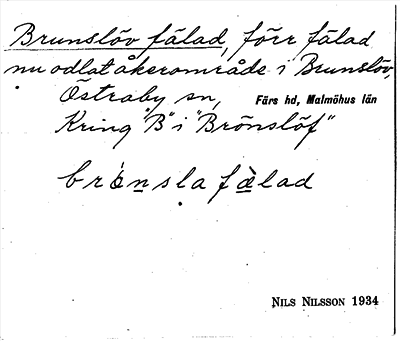 Brunslöv fälad, förr fälad
nu odlat åkerområde i Brunslöv,
Östraby sn, Färs hd, Malmöhus län
Kring "B" i "Brönslöf"
brånsla fälad
NILS NILSSON 1934